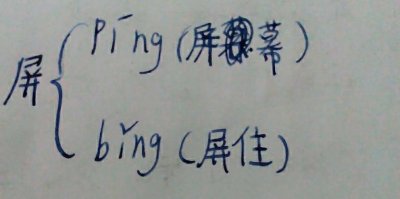 屏
píng(屏幕)
bǐng(屏住)